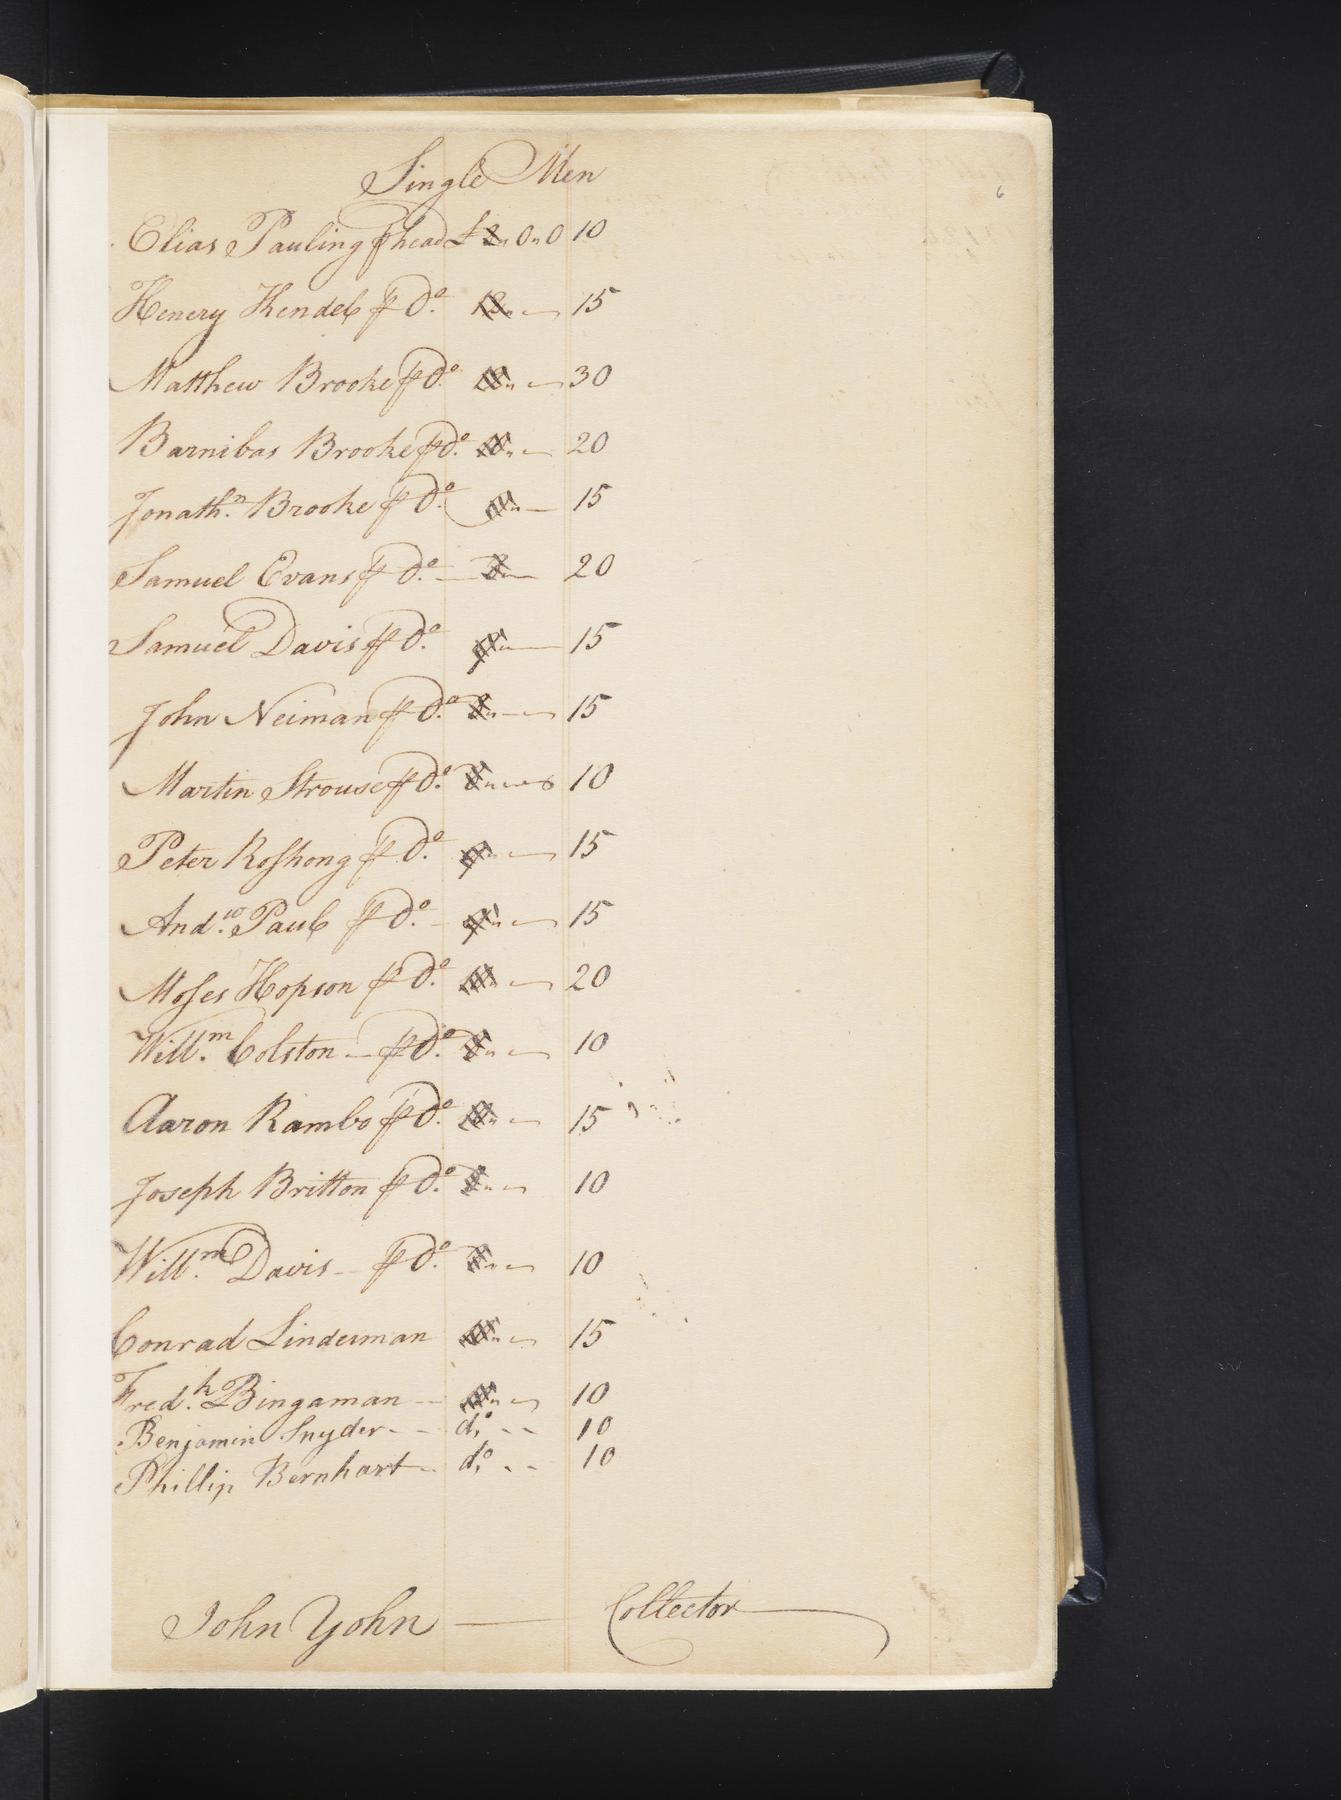 Single Men
6
Elias Pauling ⅌ head £ 2 " 0 " 0 10
Henery Kendel ⅌ Do. 15
Matthew Brooke ⅌ Do. 30
Barnibas Brooke ⅌ Do. 20
Jonathn. Brooke ⅌ Do. 15
Samuel Evans ⅌ Do. 20
Samuel Davis ⅌ Do. 15
John Neiman ⅌ Do. 15
Martin Strouse ⅌ Do. 10
Peter Roshong ⅌ Do. 15
Andw. Paul ⅌ Do. 15
Moses Hopson ⅌ Do. 20
Willm. Colston ⅌ Do. 10
Aaron Rambo ⅌ Do. 15
Joseph Britton ⅌ Do. 10
Willm. Davis ⅌ Do. 10
Conrad Linderman 15
Fredk. Bingaman 10
Benjamin Snyder do. 10
Phillip Bernhart do. 10
John Yohn — Collector